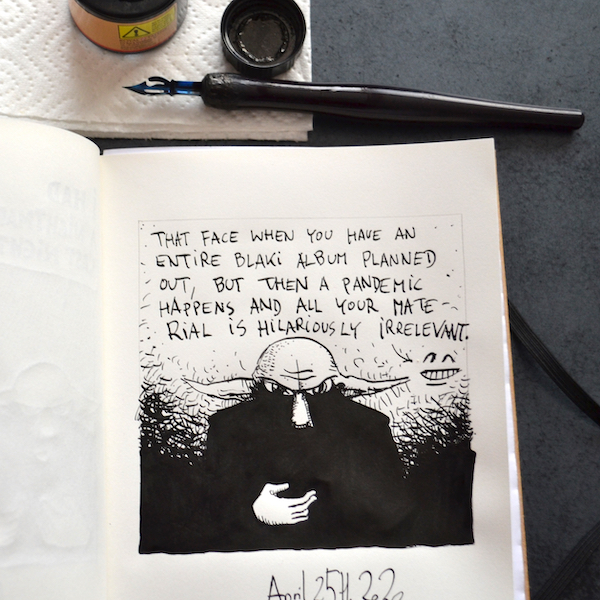 THAT FACE WHEN YOU HAVE AN
ENTIRE BLAKI ALBUM PLANNED
OUT, BUT THEN A PANDEMIC
HAPPENS AND ALL YOUR MATE-
RIAL IS HILARIOUSLY IRRELEVANT.
April 25th 2020